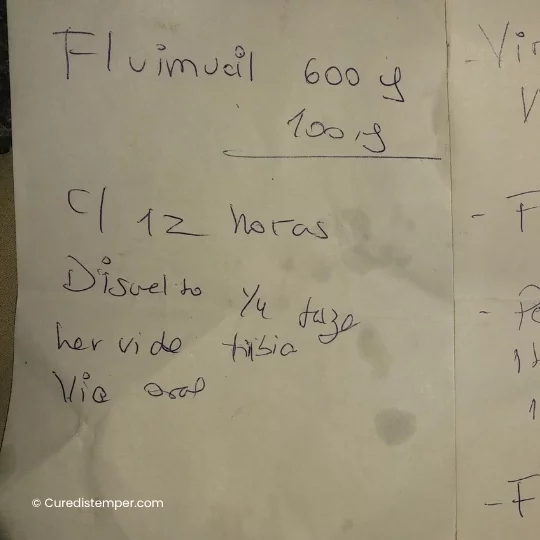 Fluimucil 600 g
100 g
C/ 12 horas
Disuelto 1/4 taza
hervida tibia
Via oral
- Vir
V
- F
- Fe
1
1
- F
© Curedistemper.com